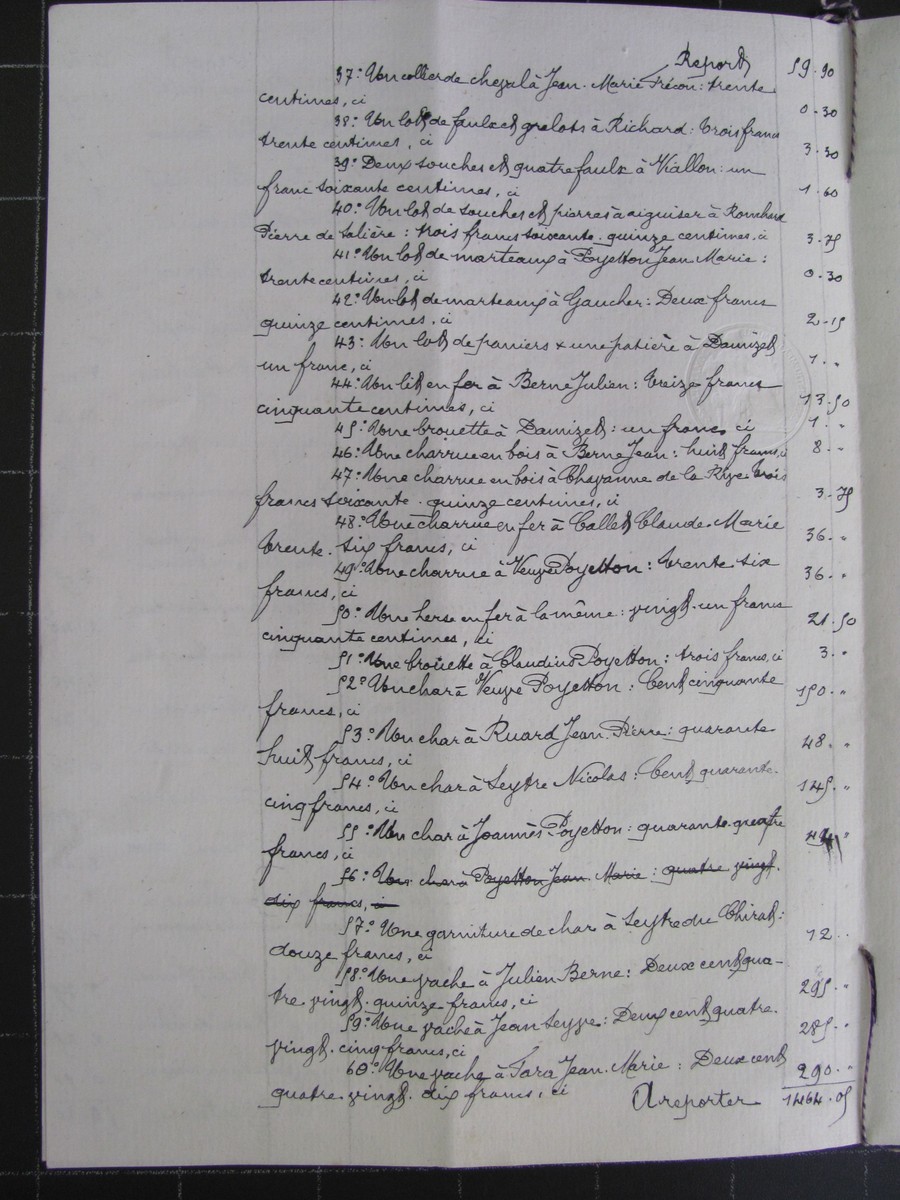 Report 59.90
37° Un collier de cheval à Jean-Marie Frécon : trente
centimes, ci 0.30
38° Un lot de faulx et grelots à Richard : trois francs
trente centimes, ci 3.30
39° Deux souches et quatre faulx à Viallon : un
franc soixante centimes, ci 1.60
40° Un lot de souches et pierres à aiguiser à
Pierre de Salière : trois francs soixante-quinze centimes, ci 3.75
41° Un lot de marteaux à Poyetton Jean Marie :
trente centimes, ci 0.30
42° Un lot de marteaux à Gaucher : Deux francs
quinze centimes, ci 2.15
43° Un lot de paniers & une patière à Damizet
un franc, ci 1. "
44° Un lit en fer à Berne Julien : treize francs
cinquante centimes, ci 13.50
45° Une brouette à Damizet : un franc, ci 1. "
46° Une charrue en bois à Berne Jean : huit francs, ci 8. "
47° Une charrue en bois à Cheyanne de la Rive trois
francs soixante-quinze centimes, ci 3.75
48° Une charrue en fer à Collet Claude-Marie
trente-six francs, ci 36. "
49° Une charrue à Veuve Poyetton : trente six
francs, ci 36. "
50° Une herse en fer à la même : vingt-un francs
cinquante centimes, ci 21.50
51° Une brouette à Claudius Poyetton : trois francs, ci 3. "
52° Un char à Veuve Poyetton : Cent cinquante
francs, ci 150. "
53° Un char à Ruard Jean-Pierre : quarante
huit francs, ci 48. "
54° Un char à Seytre Nicolas : Cent quarante-
cinq francs, ci 145. "
55° Un char à Joannès Poyetton : quarante-quatre
francs, ci 44 "
56° Un char à Poyetton Jean-Marie : quatre vingt-
dix francs, ci
57° Une garniture de char à Seytre du Chirat :
douze francs, ci 12. "
58° Une vache à Julien Berne : Deux cent qua-
tre vingt-quinze francs, ci 295. "
59° Une vache à Jean Seyve : Deux cent quatre-
vingt-cinq francs, ci 285. "
60° Une vache à Jara Jean-Marie : Deux cent
quatre-vingt-dix francs, ci 290. "
A reporter 1464.05